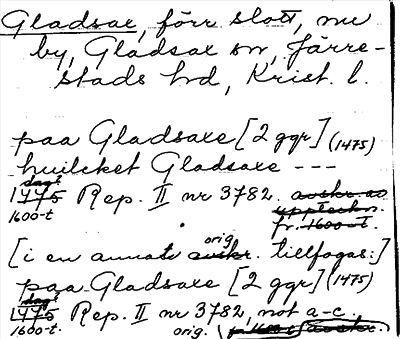 Gladsax, förr slott, nu
by, Gladsax sn, Järre-
stads hd, Krist. l.
paa Gladsaxe [2 ggr] (1475)
huilcket Gladsaxe ---
dagt
1475 Rep. II nr 3782. avskr. av
1600-t. uppteckn.
fr. 1600-t.
orig.
[i en annat avskr. tillfogas:]
paa Gladsaxe [2 ggr] (1475)
dagt
1475 Rep. II nr 3782, not a-c.
1600-t. orig. fr. 1600-t avskr.